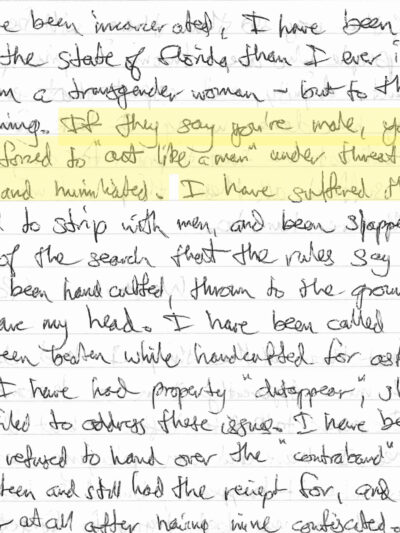 e been incarcerated, I have been
the state of Florida than I ever i
m a transgender woman - but to th
ning. If they say you're male, yo
forced to "act like a man" under threat
and humiliated. I have suffered th
d to strip with men, and been slappe
of the search that the rules say
been handcuffed, thrown to the grou
ave my head. I have been called
een beaten while handcuffed for ask
I have had property "disappear", st
iled to address these issues. I have be
refused to hand over the "contraband"
teen and still had the reciept for, and
at all after having mine confiscated.